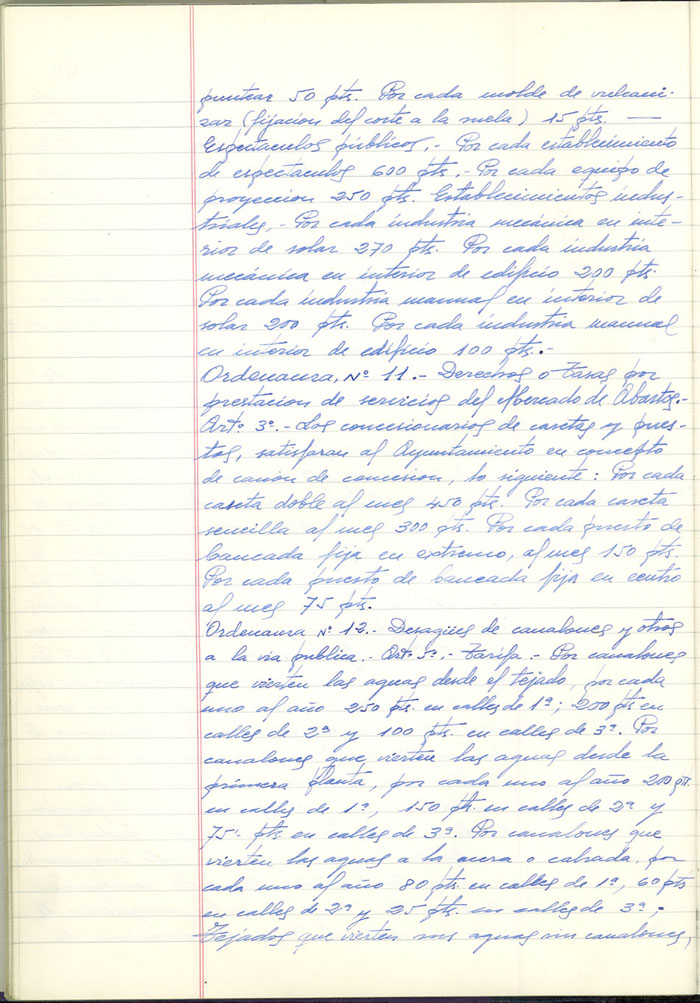 puntear 50 pts. Por cada molde de vulcani-
zar (fijacion del corte a la suela) 15 pts. —
Espectaculos públicos.- Por cada establecimiento
de espectaculos 600 pts.- Por cada equipo de
proyeccion 250 pts. Establecimientos indus-
triales.- Por cada industria mecánica en inte-
rior de solar 270 pts. Por cada industria
mecánica en interior de edificio 200 pts.
Por cada industria manual en interior de
solar 200 pts. Por cada industria manual
en interior de edificio 100 pts.-
Ordenanza, Nº 11.- Derechos o Tasas por
prestacion de servicios del Mercado de Abastos.-
Artº 3º.- Los concesionarios de casetas y pues-
tos, satisfaran al Ayuntamiento en concepto
de canon de concesion, lo siguiente: Por cada
caseta doble al mes 450 pts. Por cada caseta
sencilla al mes 300 pts. Por cada puesto de
bancada fija en extremo, al mes 150 pts.
Por cada puesto de bancada fija en centro
al mes 75 pts.
Ordenanza Nº 12.- Desagües de canalones y otros
a la via publica.- Artº 5º.- Tarifa.- Por canalones
que vierten las aguas desde el tejado, por cada
uno al año 250 pts. en calles de 1ª; 200 pts en
calles de 2ª y 100 pts. en calles de 3ª. Por
canalones que vierten las aguas desde la
primera planta, por cada uno al año 200 pts.
en calles de 1ª, 150 pts. en calles de 2ª y
75.- pts. en calles de 3ª. Por canalones que
vierten las aguas a la acera o calzada, por
cada uno al año 80 pts. en calles de 1ª, 60 pts
en calles de 2ª y 25 pts. en calles de 3ª;
Tejados que vierten sus aguas sin canalones,